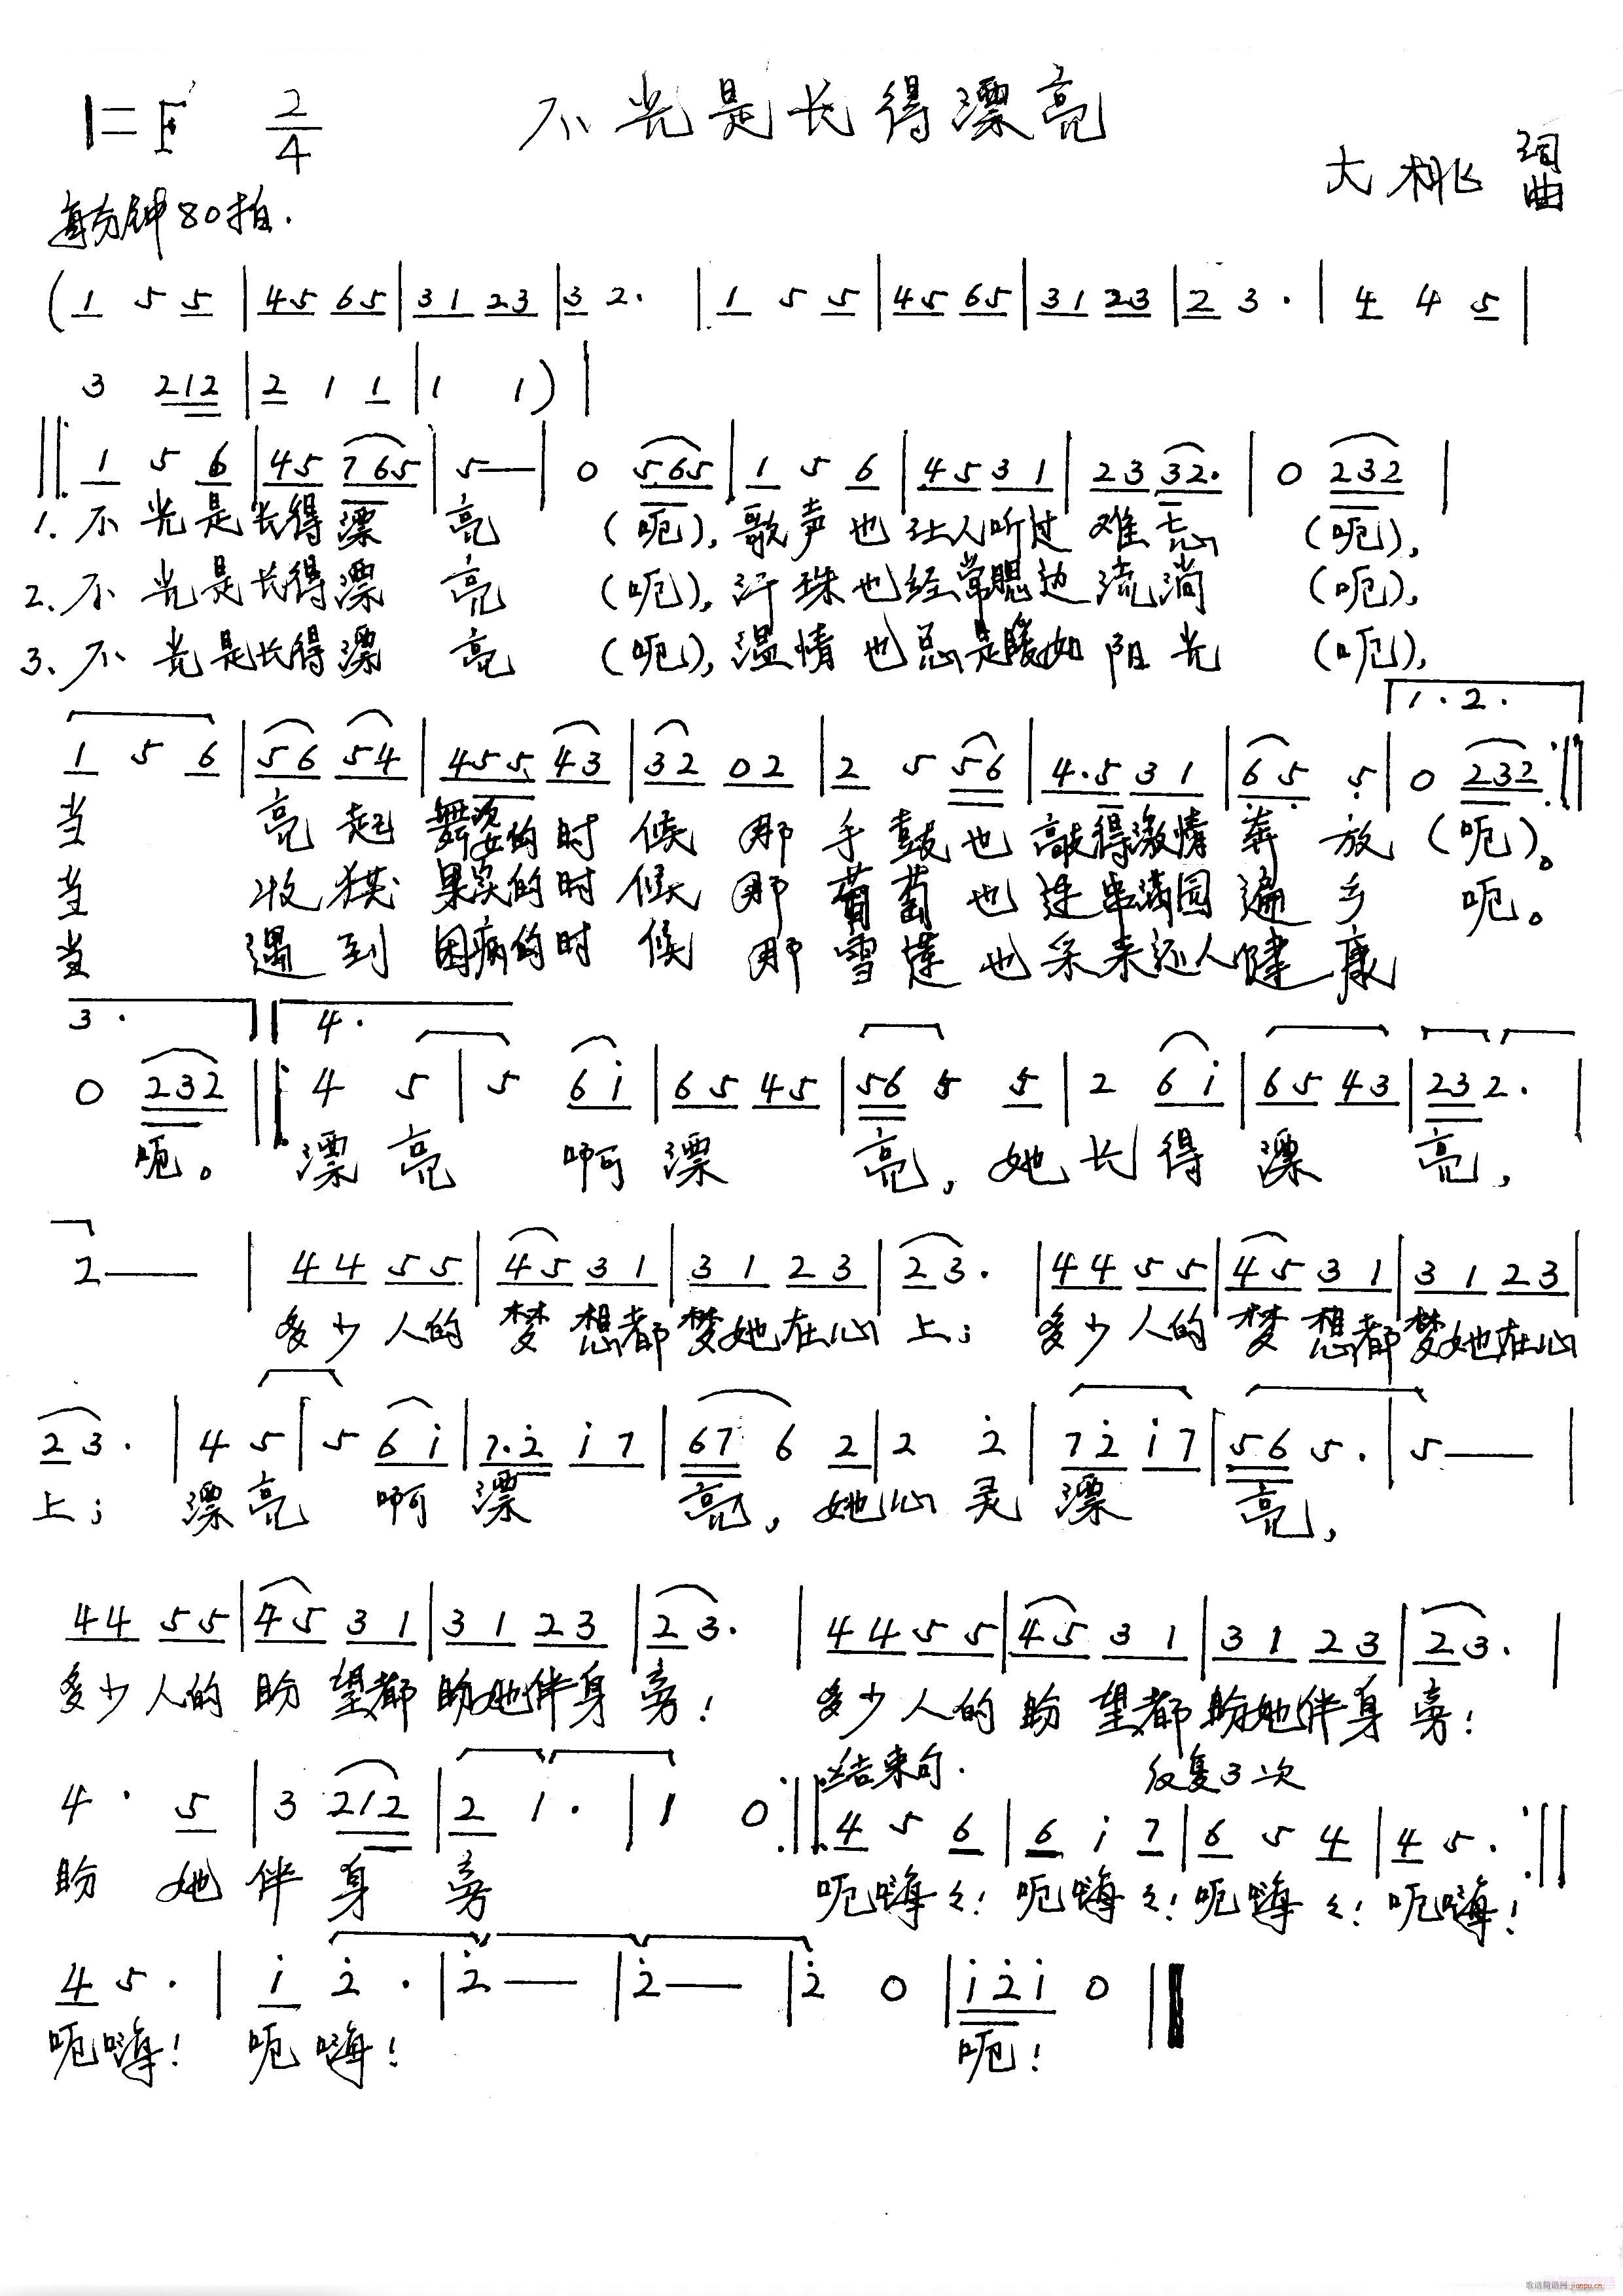 1=F 2/4 不光是长得漂亮
大桃 词曲
每分钟80拍.
(1 5 5 | 45 65 | 31 23 | 3 2. | 1 5 5 | 45 65 | 31 23 | 2 3. | 4 4 5 |
3 212 | 2 1 1 | 1 1) |
‖: 1 5 6 | 45 765 | 5— | 0 565 | 1 5 6 | 45 31 | 23 32. | 0 232 |
1. 不光是长得漂亮 (呃), 歌声也让人听过难忘 (呃),
2. 不光是长得漂亮 (呃), 汗珠也经常腮边流淌 (呃),
3. 不光是长得漂亮 (呃), 温情也总是暖如阳光 (呃),
1.2.
1 5 6 | 56 54 | 455 43 | 32 02 | 2 5 56 | 4.5 31 | 65 5 | 0 232 :‖
当亮起舞姿的时候那手鼓也敲得激情奔放 (呃)。
当收获果实的时候那葡萄也连串满园遍乡 呃。
当遇到困病的时候那雪莲也采来还人健康
3. 4.
0 232 ‖: 4 5 | 5 6i | 65 45 | 56 5 5 | 2 6i | 65 43 | 23 2. |
呃。 漂亮 啊漂亮, 她长得漂亮,
2— | 44 55 | 45 31 | 31 23 | 23. | 44 55 | 45 31 | 31 23 |
多少人的梦想都梦她在心上; 多少人的梦想都梦她在心
23. | 4 5 | 5 6i | 7.2 i7 | 67 6 2 | 2 2 | 72 i7 | 56 5. | 5— |
上; 漂亮 啊漂亮, 她心灵漂亮,
44 55 | 45 31 | 31 23 | 23. | 44 55 | 45 31 | 31 23 | 23. |
多少人的盼望都盼她伴身旁! 多少人的盼望都盼她伴身旁!
结束句. 反复3次
4. 5 | 3 212 | 2 1. | 1 0 :‖: 4 5 6 | 6 i 7 | 6 5 4 | 4 5. :‖
盼她伴身旁 呃嗨々! 呃嗨々! 呃嗨々! 呃嗨!
4 5. | i 2. | 2— | 2— | 2 0 | i2i 0 ‖
呃嗨! 呃嗨! 呃!
歌谱简谱网 jianpu.cn